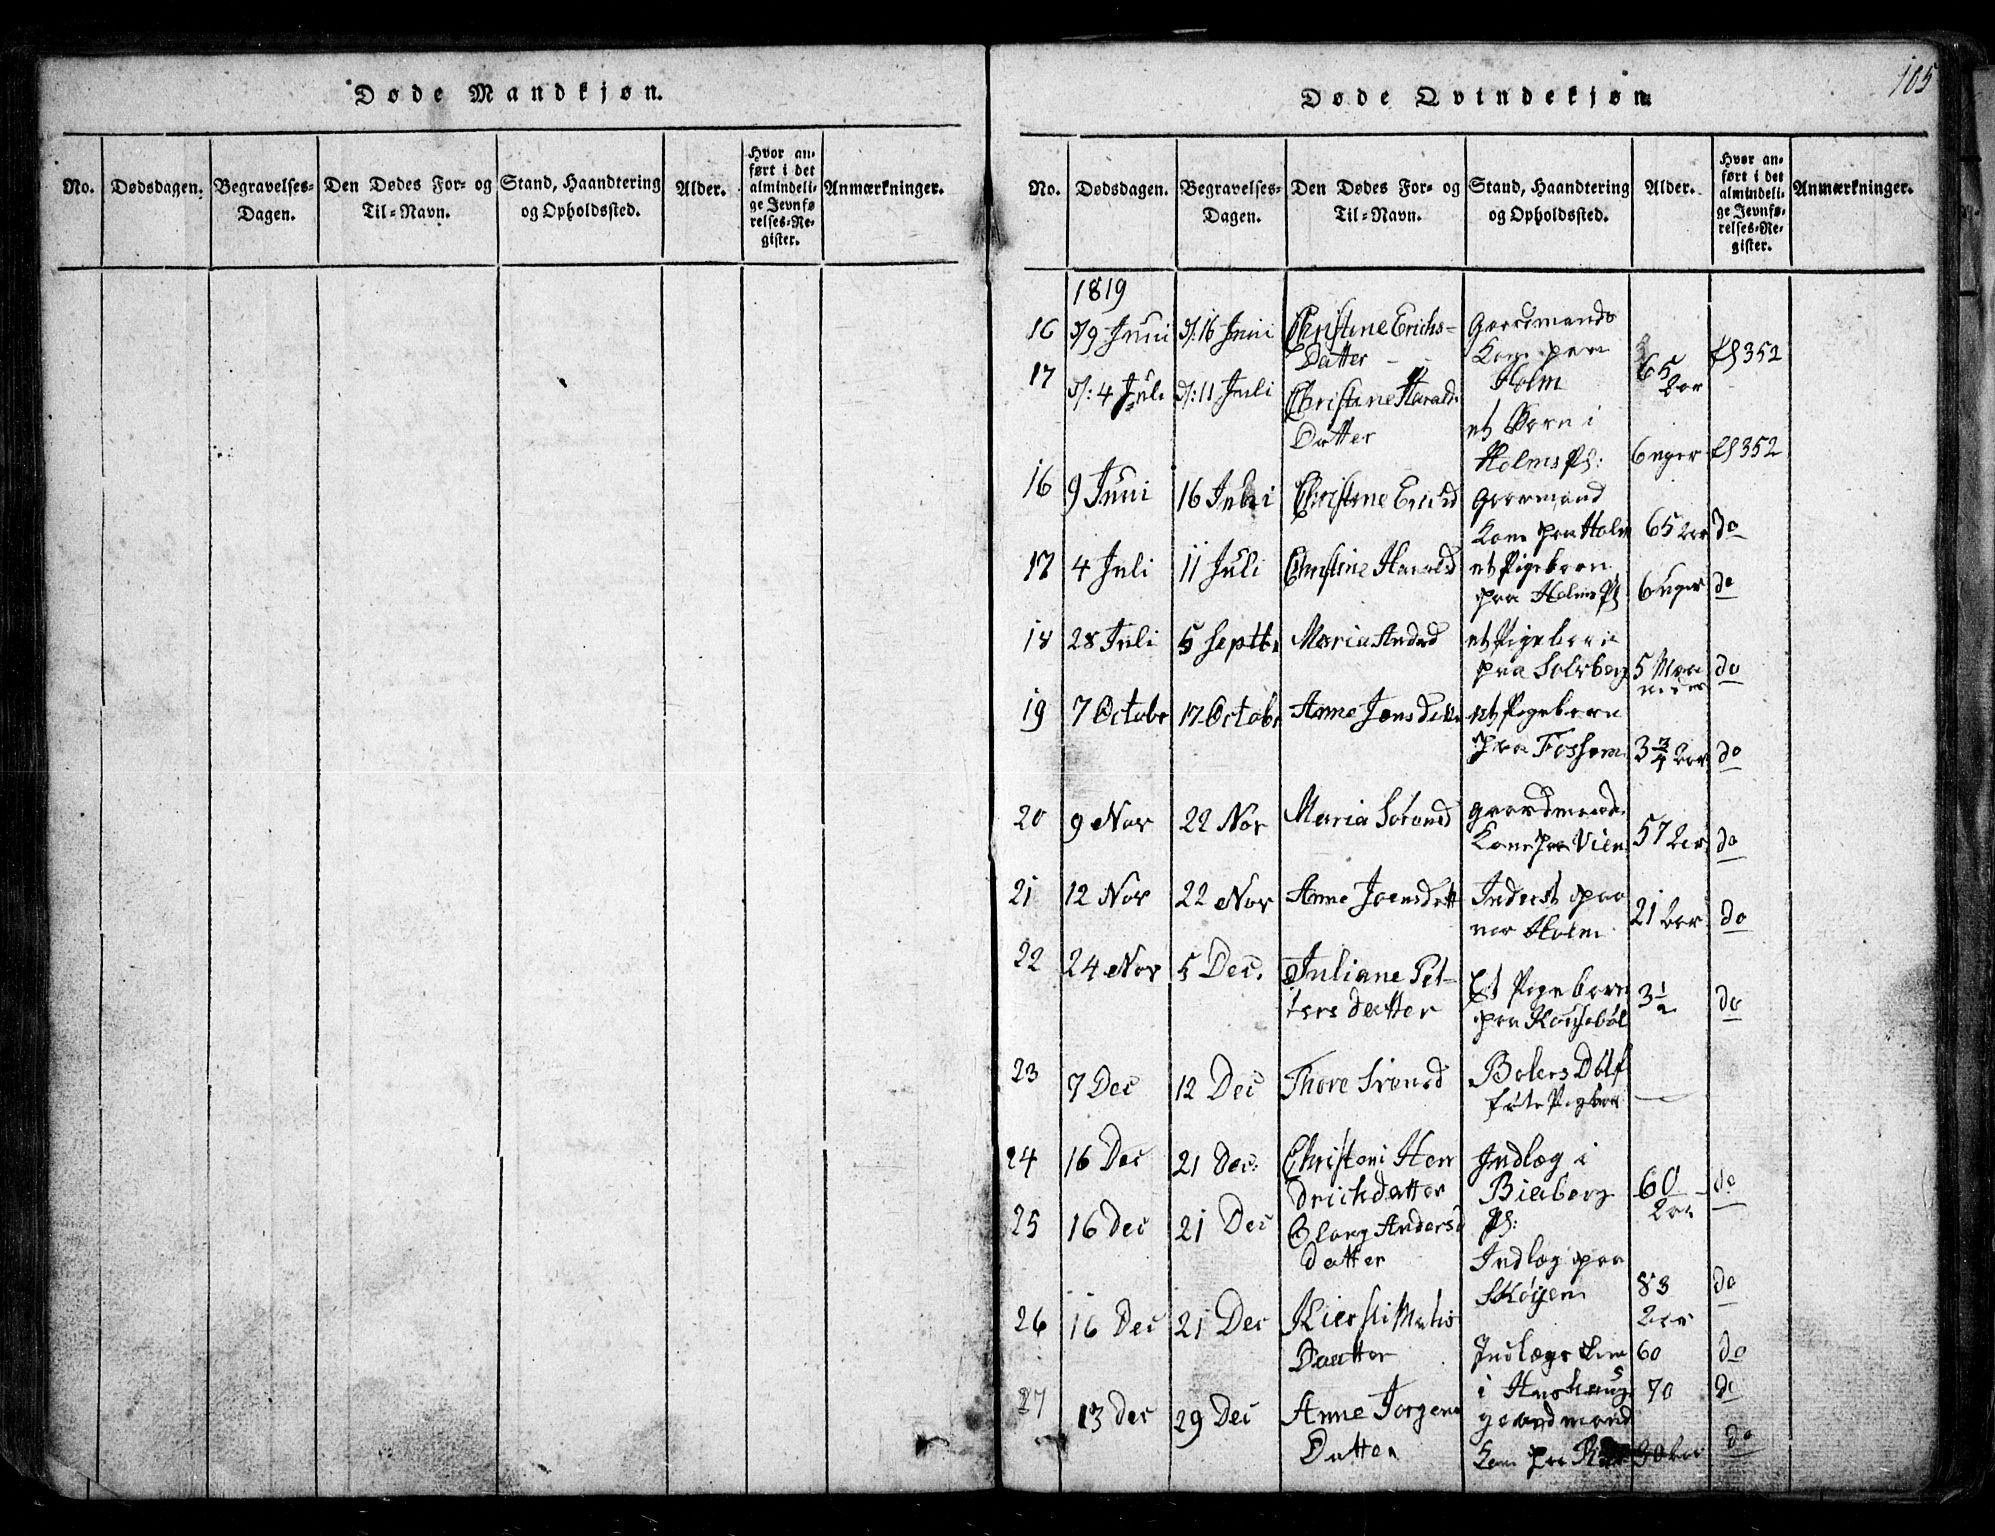 Døde Mandkjøn.
No. Dødsdagen. Begravelses-Dagen. Den Dødes For- og Til-Navn. Stand, Haandtering og Opholdssted. Alder. Hvor anført i det almindelige Jevnførelses-Register. Anmærkninger.
105
Døde Qvindekjøn
No. Dødsdagen. Begravelses-Dagen. Den Dødes For- og Til-Navn. Stand, Haandtering og Opholdssted. Alder. Hvor anført i det almindelige Jevnførelses-Register. Anmærkninger.
1819
16 d/9 Juni d/: 16 Juni Christine Erichs-
Datter
Gaardmands
Kone paa
Holm
65
Aar
352
17 d/: 4 Jul. d/: 11 Juli Christine Harald-
Datter
et Barn i
Holms Pl:
6 uger
352
16 9 Juni 16 Juli Christine Erichsd
Gaarmand
Kone paa Holm 65 Aar do
17 4 Juli 11 Juli Christine Haralsd et Pigebarn
paa Holms Pl 6 uger do
18 28 Juli 5 Septbr Maria Andersd et Pigebarn
paa Solsberg 5 Maaneder do
19 7 Octobr 17 Octobr Anne Jensdatter et Pigebarn
paa Fossum 3 3/4 Aar do
20 9 Nov 22 Nov Maria Sörensd gaardmands
Kone paa Vien 57 Aar do
21 12 Nov 22 Nov Anne Joensdatt Inderst paa
Holm 21 Aar do
22 24 Nov 5 Dec. Juliane Pet-
tersdatter
Et Pigebarn
paa
3 1/2 do
23 7 Dec 12 Dec Thore Svensd
Pigebarn
24 16 Dec 21 Dec: Christeni Hen
drichdatter
Indlæg i
Bieberg
Pl:
60
Aar
do
25 16 Dec 21 Dec Anders
datter
Indlæg paa
Skøyen 83
Aar
do
26 16 Dec 21 Dec Kiersti Mats
Daatter
Indlægs
60 do
i 70 do
27 13 Dec 29 Dec Anne Jorgens
Datter
gaardmand
Kone paa
do